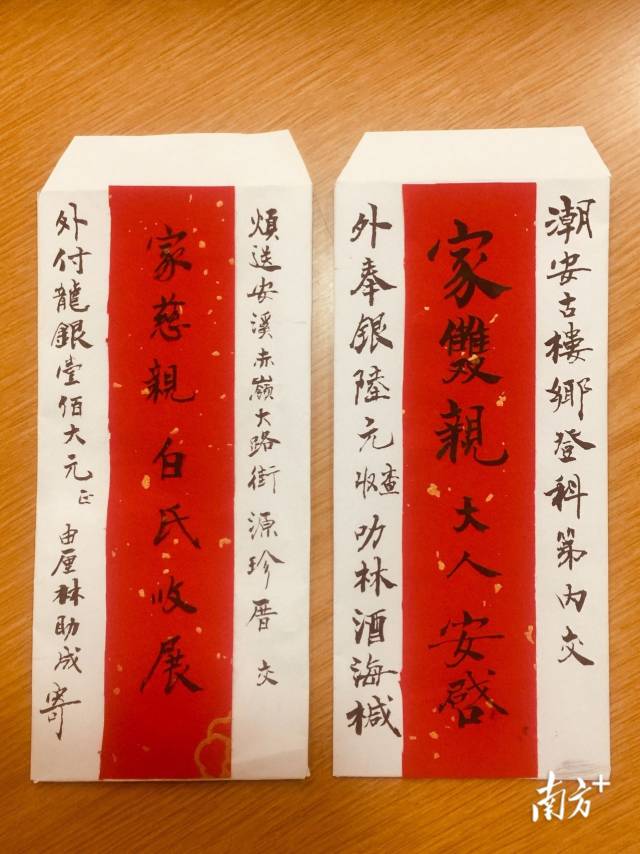 潮安古樓鄉登科第內交
家雙親大人安啓
外奉銀陸元查收 叻林酒海槭
煩送安溪赤嶺大路街源珍厝交
家慈親白氏收展
外付龍銀壹佰大元正 由厘林助成寄
南方+